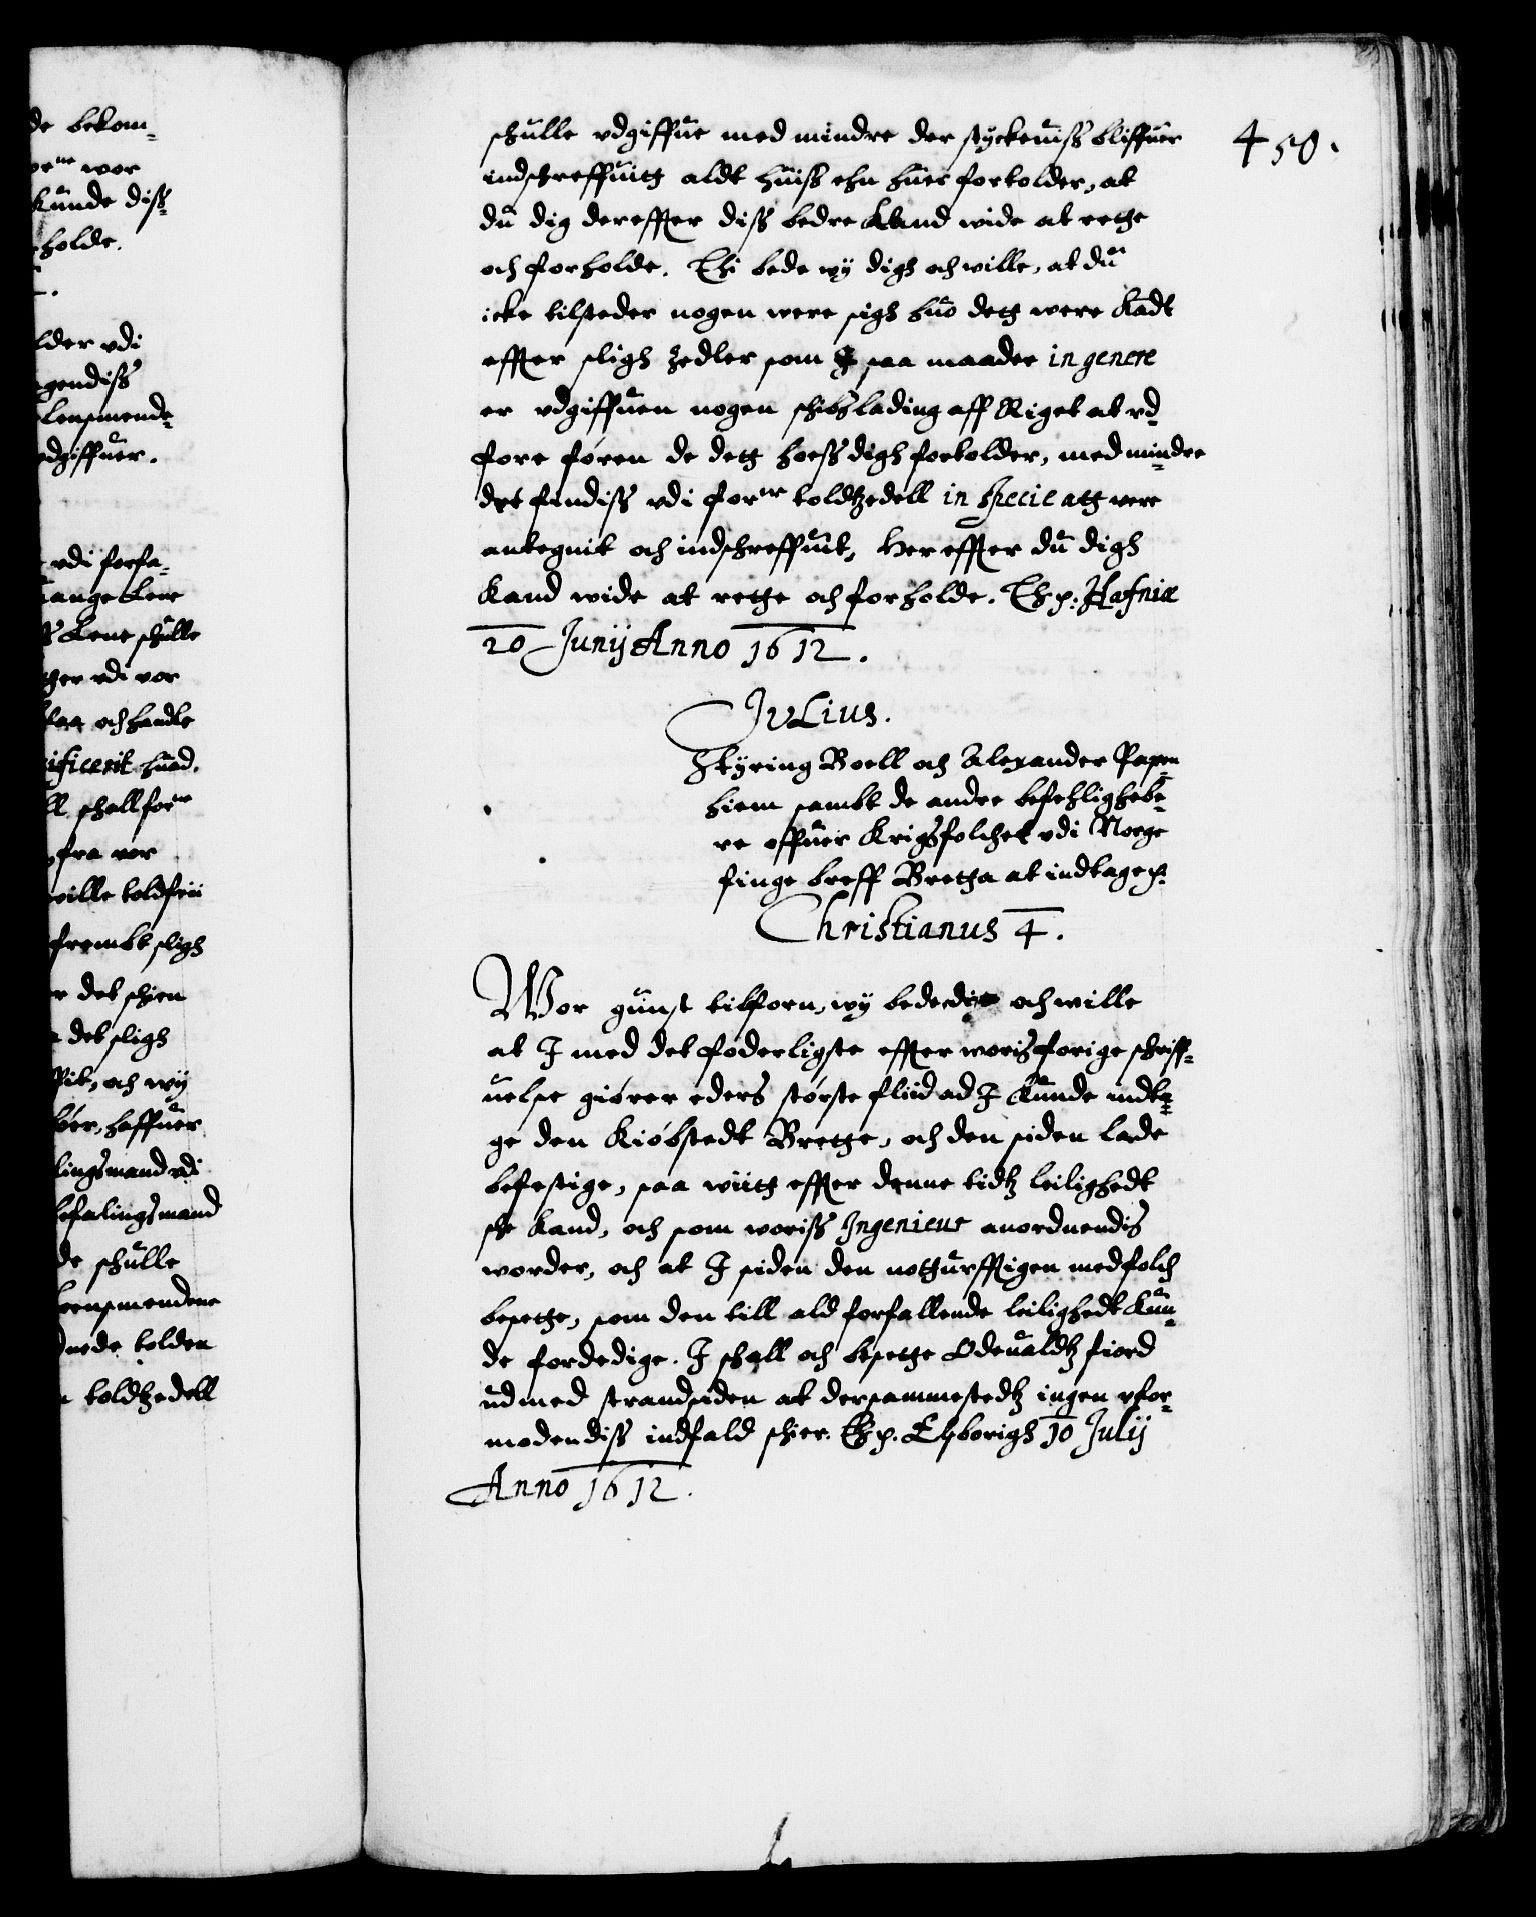 de bekom-
wor
kunde diss-
holde.
lder vdi
gendiss
Lensmend-
vdgiffuer.
vdi forfa-
ange Lene
Lene schulle
ger vdi vor
och handle
ificerit huad.
ll schall forne
fra vor
wille toldfrii
frembt sligh
det schien
det sligh
och wÿ
bør, haffuer
lingsmand vdi
befalingsmand
de schulle
Lensmendene
nede tolden
toldtzedell
450.
schulle vdgiffue med mindre der stÿckeuiss bliffuer
indschreffuitg aldt huiss ehn huer fortolder, at
du dig derefter diss bedre kand wide at rette
och forholde. Thi bede wÿ digh och wille, at du
icke tilsteder nogen were sigh huo detg were kadt
effter sligh zedler som saa maader in genere
er vdgiffuen nogen schibslading aff Riget at vd-
føre føren de detg hoess digh fortolder, med mindre
det findiss vdi forne toldtzedell in specie atg vere
antegnit och indschreffuit, Hereffter du digh
kand wide at rette och forholde. Th p: Hafniæ
20 Junij Anno 1612.
JuLius.
Stÿring Boell och Alexander Papen
hiem sambt de andre befehlighebe-
re offuer Krigsfolchet vdi Norge
finge breff Bretta at indtage p.
Christianus 4.
Wor gunst tilforn, wÿ bede och wille
at I med det foderligste effter woris forige schriff-
uelse giører eders største fliid ad I kunde indta-
ge den Kiøbstedt Brette, och den siden lade
befestige, saa wiitg effter denne tidtz leilighedt
sche kand, och som woriss Ingenieur anordnendis
worder, och at I siden den notturfftigen med folch
besette, som den till ald forfallende leilighedt kun-
de fordedige. I schall och besette Odeualdtz fiord
ud med strandsiden at dersammestedtz ingen vfor-
modendiss indfald schier. Th p. Elsborigh 10 Julij
Anno 1612.